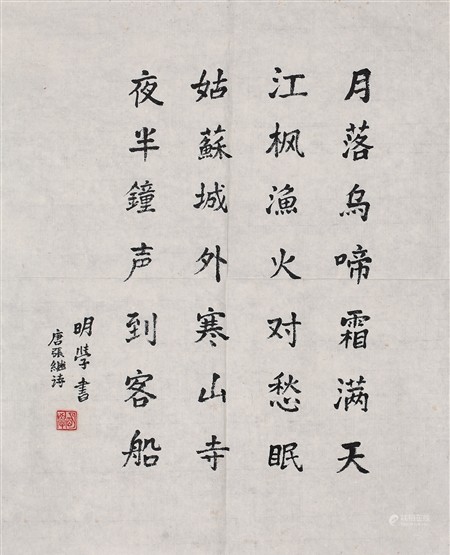 月落烏啼霜满天
江枫漁火对愁眠
姑蘇城外寒山寺
夜半鐘声到客船
明學書
唐張繼詩